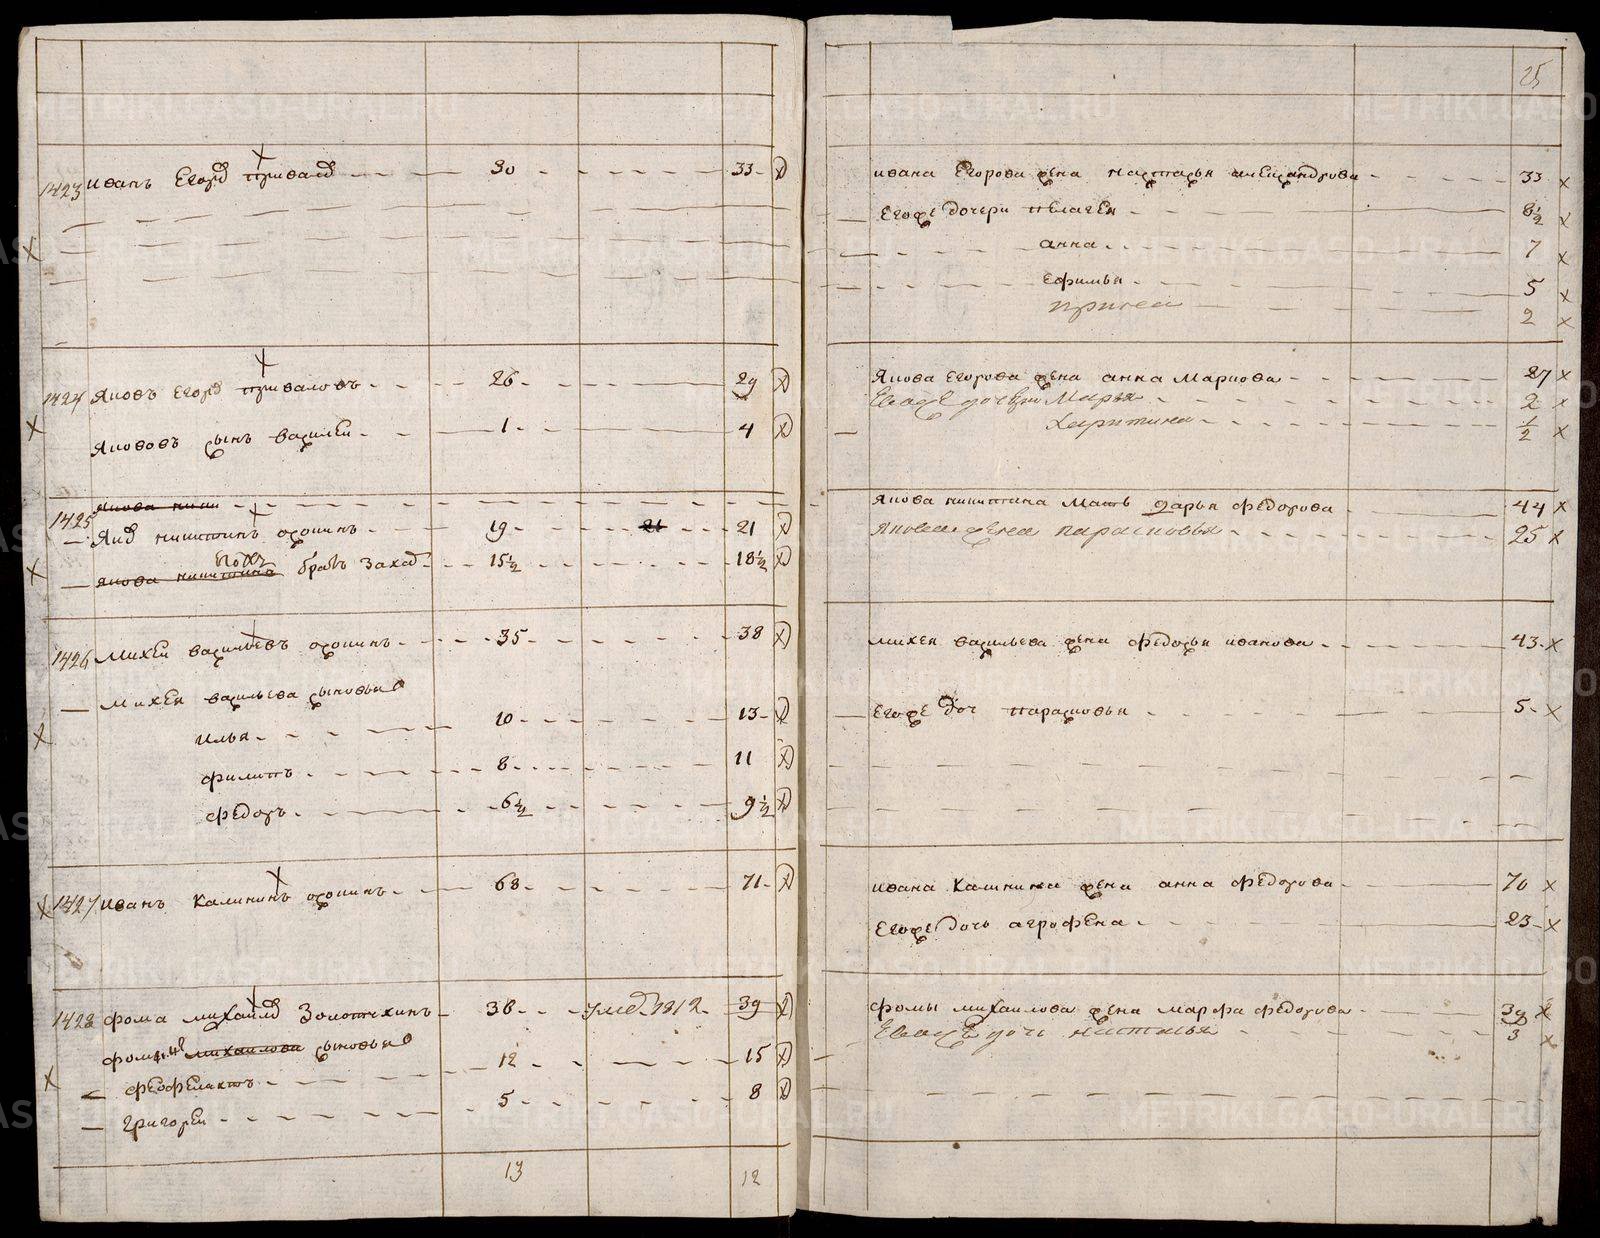 25
1423 иванъ Егоровъ приваловъ 30 33
1424 Яковъ Егоровъ приваловъ 26 29
Яковов сынъ василей 1 4
Якова ники
1425 Яков никитинъ 19 21 21
Якова никитина братъ Захаръ 15½ 18½
1426 Михей васильевъ 35 38
Михея васильева сыновья
илья 10 13
филипъ 8 11
федоръ 6½ 9½
1427 иванъ Калининъ 68 71
1428 фома михайловъ Золотухинъ 38 1812 39
михайлова сыновья
феофелактъ 12 15
григорей 5 8
13 12
ивана Егорова жена александрова 33
Егоже дочери пелагея 8½
анна 7
ефимья 5
2
Якова Егорова жена анна Маркова 27
Егоже дочери Марья 2
Харитина ½
Якова никитина Мать дарья федорова 44
Якова жена парасковья 25
михея васильева жена федосья иванова 43
Егоже доч парасковья 5
ивана Калинина жена анна федорова 70
Егоже дочь агрофена 23
фомы михаилова жена марфа федорова 39
Егоже дочь 3
METRIKI.GASO-URAL.RU